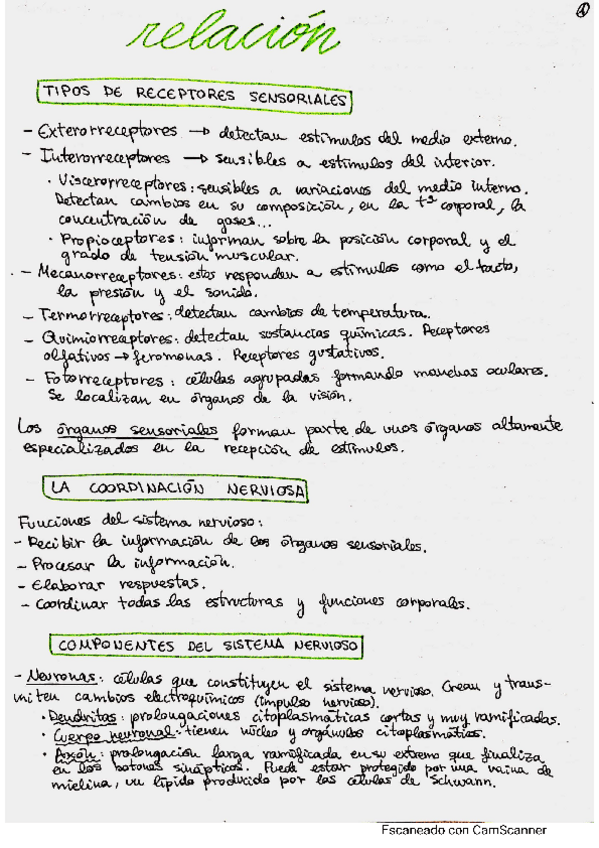 ①
relación
TIPOS DE RECEPTORES SENSORIALES
- Exterorreceptores → detectan estímulos del medio externo.
- Interorreceptores → sensibles a estímulos del interior.
· Viscerorreceptores: sensibles a variaciones del medio interno.
Detectan cambios en su composición, en la tª corporal, la
concentración de gases...
· Propioceptores: informan sobre la posición corporal y el
grado de tensión muscular.
- Mecanorreceptores: estos responden a estímulos como el tacto,
la presión y el sonido.
- Termorreceptores: detectan cambios de temperatura.
- Quimiorreceptores: detectan sustancias químicas. Receptores
olfativos → feromonas. Receptores gustativos.
- Fotorreceptores: células agrupadas formando manchas oculares.
Se localizan en órganos de la visión.
Los órganos sensoriales forman parte de unos órganos altamente
especializados en la recepción de estímulos.
LA COORDINACIÓN NERVIOSA
Funciones del sistema nervioso:
- Recibir la información de los órganos sensoriales.
- Procesar la información.
- Elaborar respuestas.
- Coordinar todas las estructuras y funciones corporales.
COMPONENTES DEL SISTEMA NERVIOSO
- Neuronas: células que constituyen el sistema nervioso. Crean y trans-
miten cambios electroquímicos (impulso nervioso).
· Dendritas: prolongaciones citoplasmáticas cortas y muy ramificadas.
· Cuerpo neuronal: tienen núcleo y orgánulos citoplasmáticos.
· Axón: prolongación larga ramificada en su extremo que finaliza
en los botones sinápticos. Puede estar protegido por una vaina de
mielina, un lípido producido por las células de Schwann.
Escaneado con CamScanner